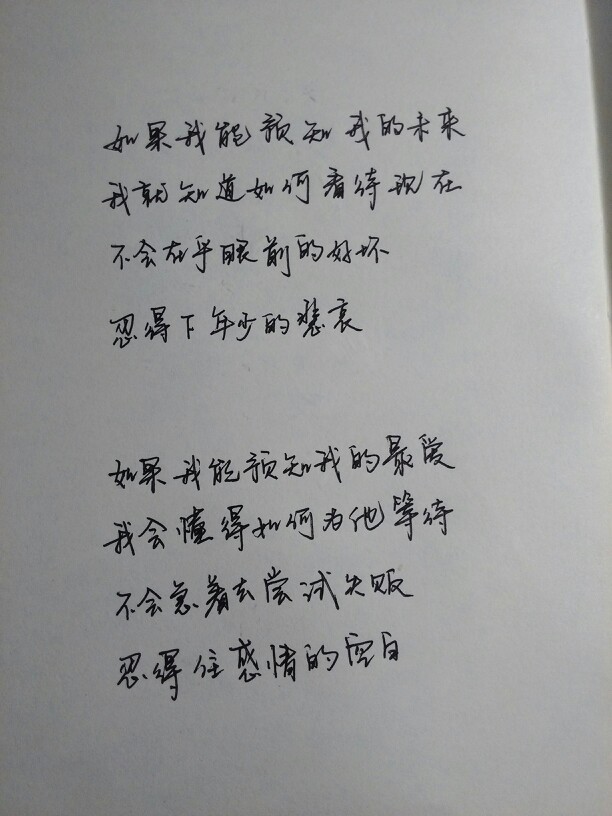 如果我能预知我的未来
我就知道如何看待现在
不会在乎眼前的好坏
忍得下年少的悲哀
如果我能预知我的最爱
我会懂得如何为他等待
不会急着去尝试失败
忍得住感情的空白